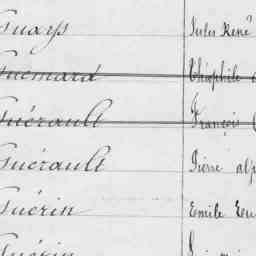 Guays Jules René
Guémard Théophile
Guérault François
Guérault Pierre alp
Guérin Emile Eu
Guérin